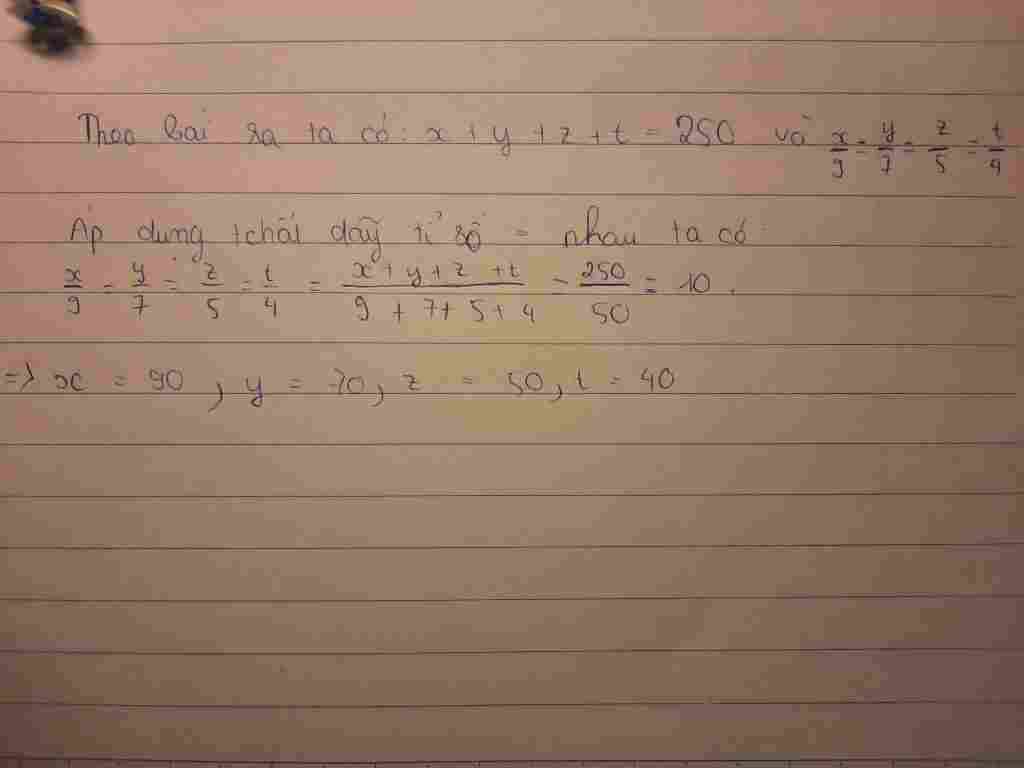 Theo bài ra ta có: x + y + z + t = 250 và x/9 = y/7 = z/5 = t/4
Áp dụng tchất dãy tỉ số = nhau ta có
x/9 = y/7 = z/5 = t/4 = (x + y + z + t)/(9 + 7 + 5 + 4) = 250/50 = 10.
=> x = 90, y = 70, z = 50, t = 40